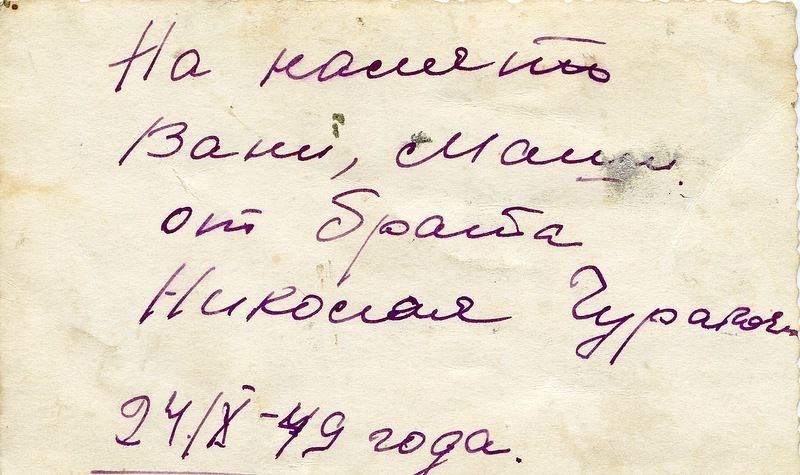 На память
Вани, Маши.
от брата
Николая
24/X-49 года.